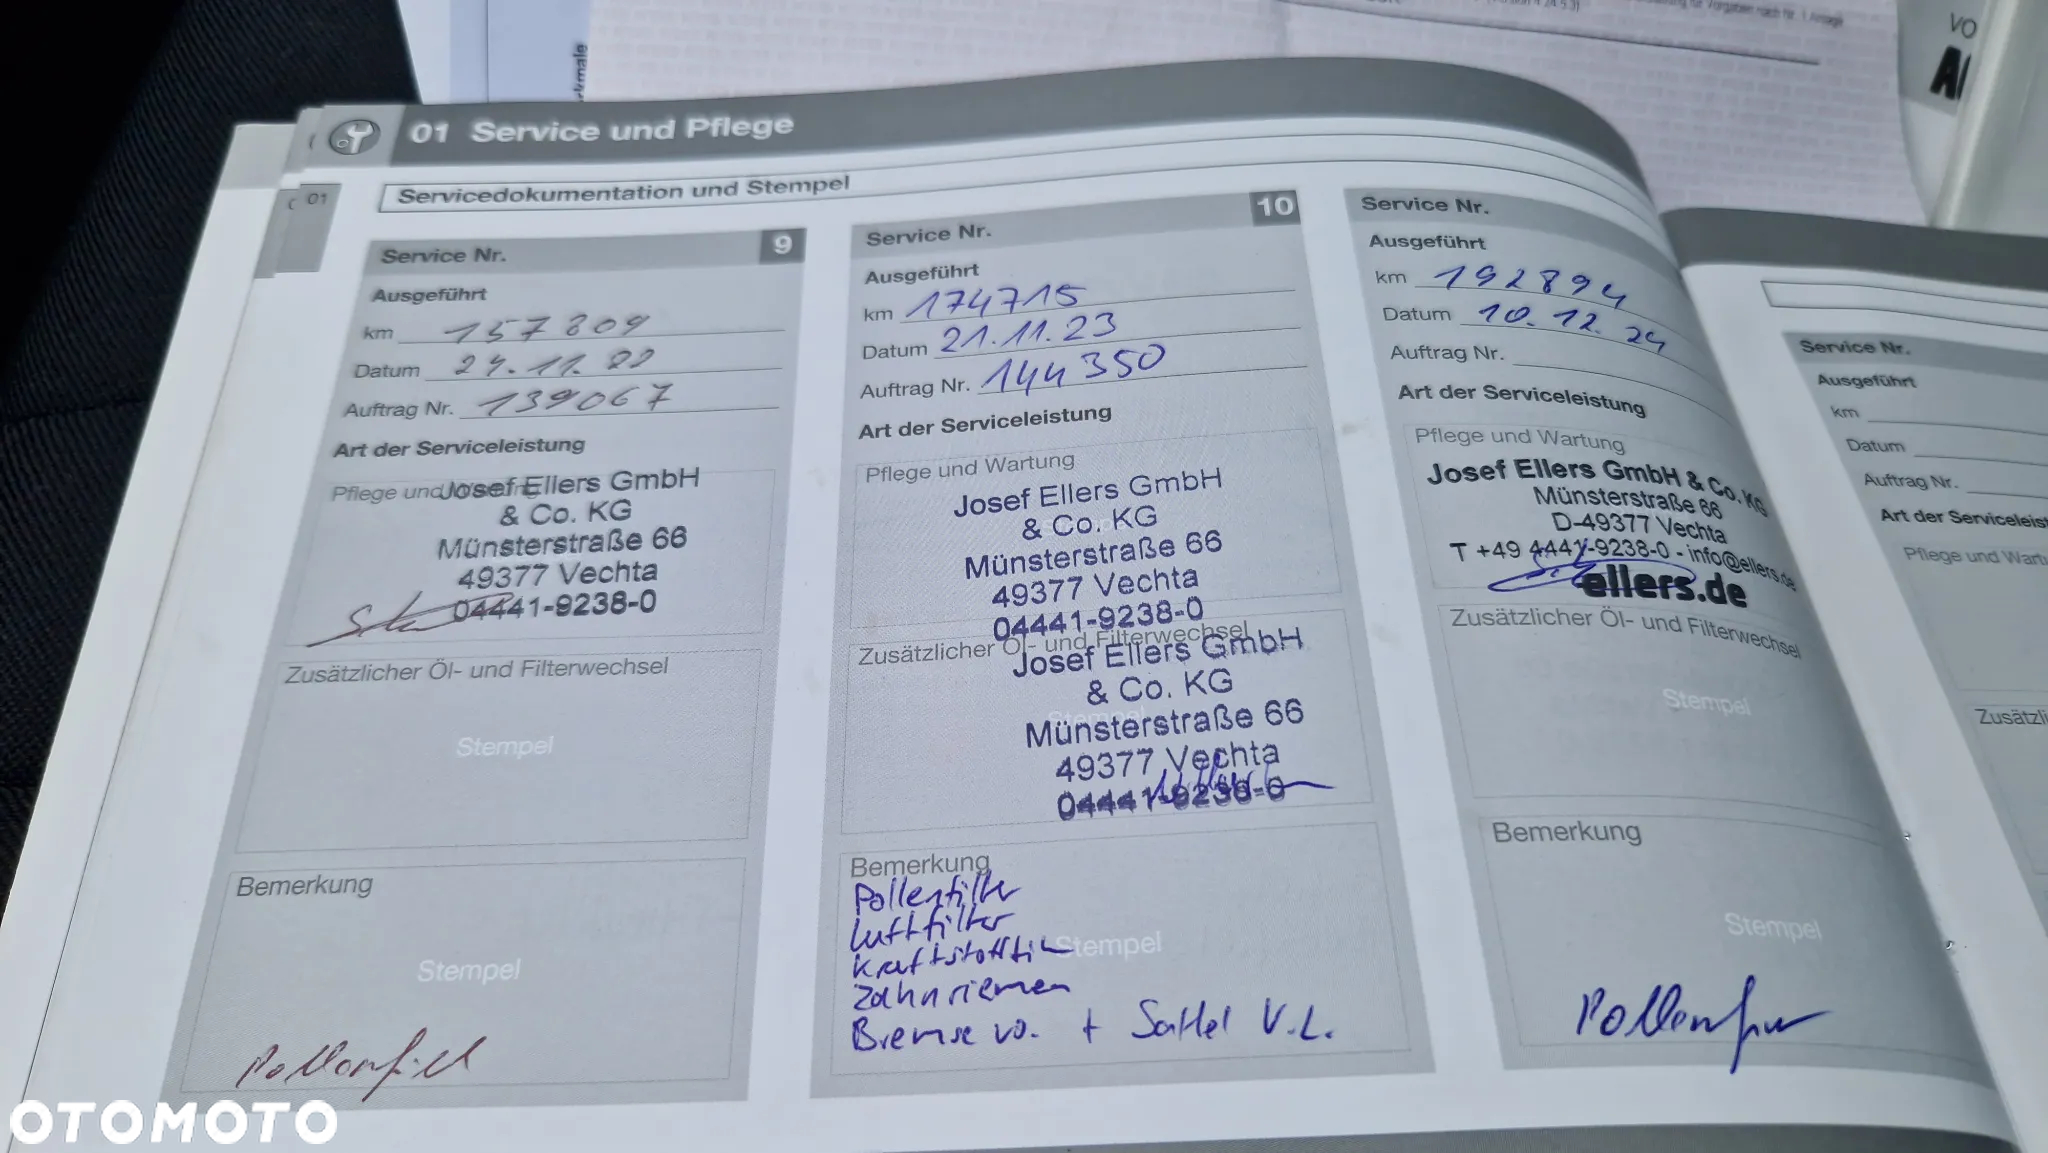 rkmale
VO
01 Service und Pflege
01
Servicedokumentation und Stempel
Service Nr. 9
Ausgeführt
km 157809
Datum 24.11.22
Auftrag Nr. 139067
Art der Serviceleistung
Pflege und
Josef Ellers GmbH
& Co. KG
Münsterstraße 66
49377 Vechta
04441-9238-0
Zusätzlicher Öl- und Filterwechsel
Stempel
Bemerkung
Stempel
Service Nr. 10
Ausgeführt
km 174715
Datum 21.11.23
Auftrag Nr. 144350
Art der Serviceleistung
Pflege und Wartung
Josef Ellers GmbH
& Co. KG
Münsterstraße 66
49377 Vechta
04441-9238-0
Zusätzlicher Öl- und Filterwechsel
Josef Ellers GmbH
& Co. KG
Münsterstraße 66
49377 Vechta
04441-9238-0
Bemerkung
Pollenfilter
Luftfilter
Kraftstofffil
Stempel
Zahnriemen
Bremse vo. + Sattel V.L.
Service Nr.
Ausgeführt
km 192894
Datum 10.12.24
Auftrag Nr.
Art der Serviceleistung
Pflege und Wartung
Josef Ellers GmbH & Co. KG
Münsterstraße 66
D-49377 Vechta
T +49 4441-9238-0 - info@ellers.de
ellers.de
Zusätzlicher Öl- und Filterwechsel
Stempel
Bemerkung
Stempel
Service Nr.
Ausgeführt
km
Datum
Auftrag Nr.
Art der Serviceleist
Pflege und Wart
Zusätzli
OTOMOTO